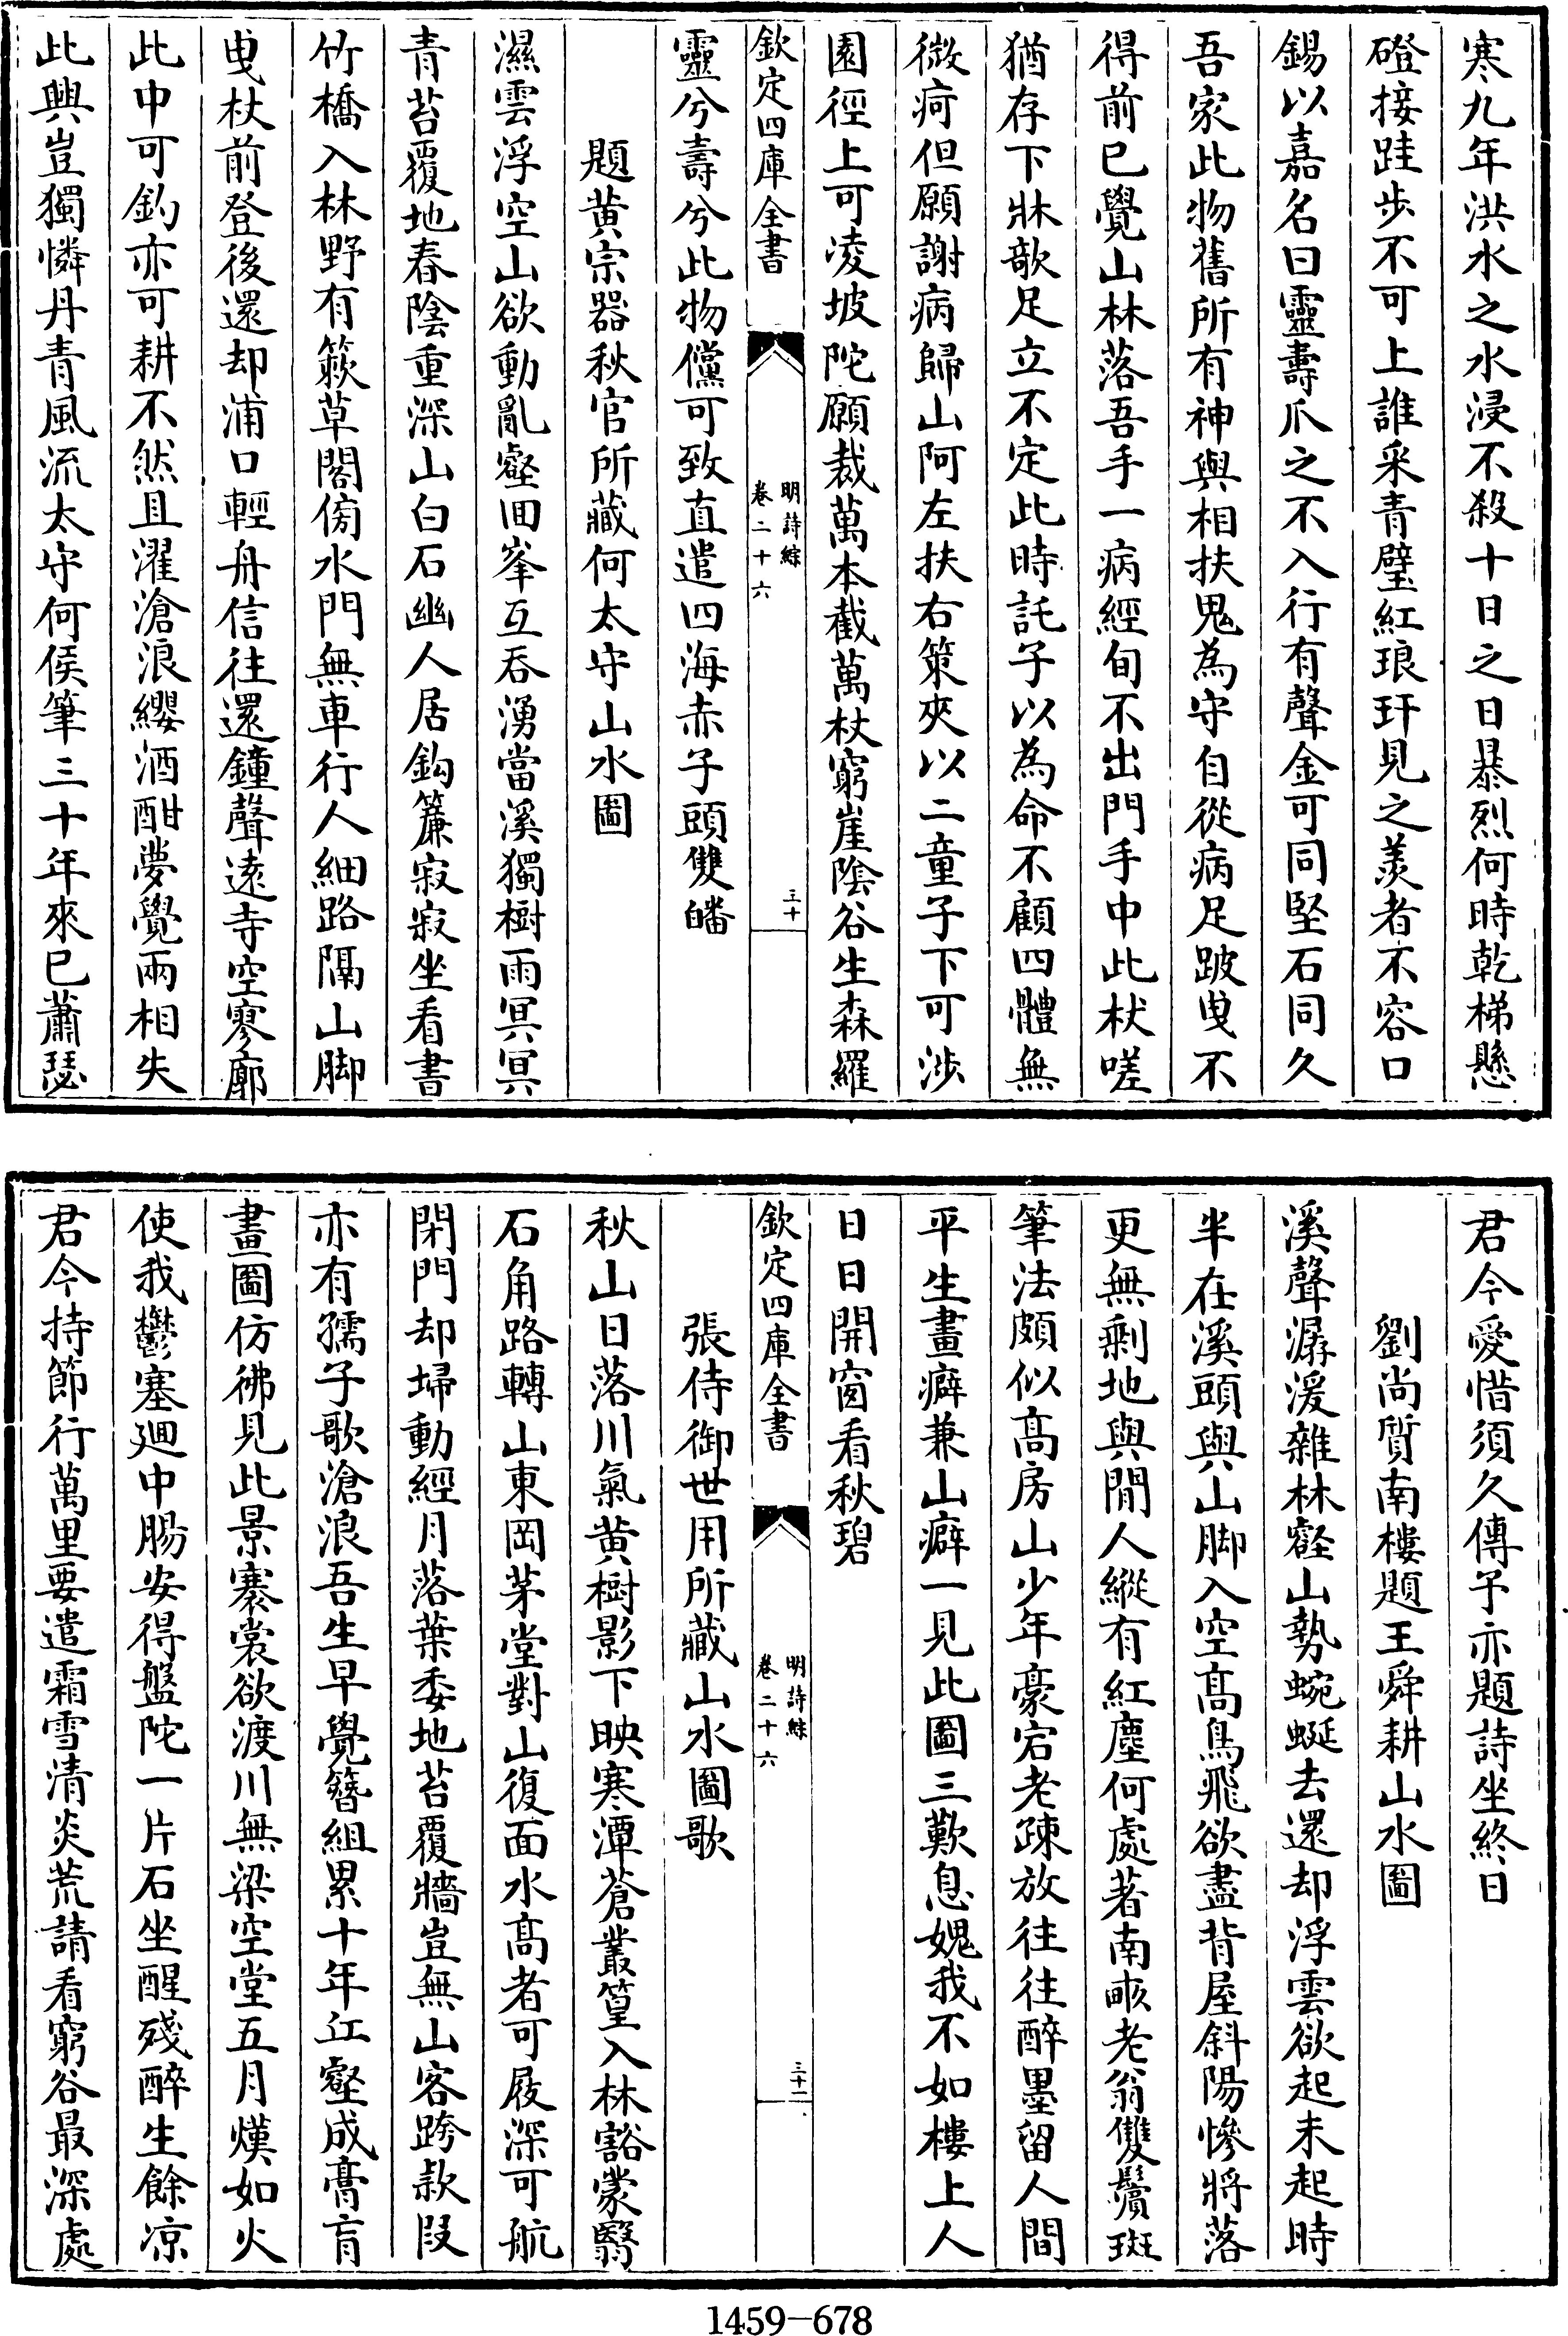 寒九年洪水之水浸不殺十日之日暴烈何時乾梯懸
磴接跬步不可上誰采青壁紅琅玕見之羨者不容口
錫以嘉名曰靈壽爪之不入行有聲金可同堅石同久
吾家此物舊所有神與相扶鬼為守自從病足跛曳不
得前已覺山林落吾手一病經旬不出門手中此杖嗟
猶存下牀欹足立不定此時託子以為命不顧四體無
微疴但願謝病歸山阿左扶右策夾以二童子下可涉
園徑上可凌坡陀願裁萬本截萬杖窮崖陰谷生森羅
欽定四庫全書
明詩綜
卷二十六
三十
靈兮壽兮此物儻可致直遣四海赤子頭雙皤
題黄宗器秋官所藏何太守山水圖
濕雲浮空山欲動亂壑回峯互吞湧當溪獨樹雨冥冥
青苔覆地春陰重深山白石幽人居鈎簾寂寂坐看書
竹橋入林野有簌草閣傍水門無車行人細路隔山脚
曳杖前登後還却浦口輕舟信往還鐘聲遠寺空寥廓
此中可釣亦可耕不然且濯滄浪纓酒酣夢覺兩相失
此興豈獨憐丹青風流太守何侯筆三十年來已蕭瑟
君今愛惜須久傳予亦題詩坐終日
劉尚質南樓題王舜耕山水圖
溪聲潺湲雜林壑山勢蜿蜒去還却浮雲欲起未起時
半在溪頭與山脚入空髙鳥飛欲盡背屋斜陽慘將落
更無剩地與閒人縱有紅塵何處著南畝老翁雙鬢斑
筆法頗似髙房山少年豪宕老疎放往往醉墨留人間
平生畫癖兼山癖一見此圖三歎息媿我不如樓上人
日日開窗看秋碧
欽定四庫全書
明詩綜
卷二十六
三十一
張侍御世用所藏山水圖歌
秋山日落川氣黄樹影下映寒潭蒼叢篁入林豁蒙翳
石角路轉山東岡茅堂對山復面水髙者可屐深可航
閑門却埽動經月落葉委地苔覆牆豈無山客跨款段
亦有孺子歌滄浪吾生早覺簪組累十年丘壑成膏肓
畫圖仿彿見此景褰裳欲渡川無梁空堂五月熯如火
使我鬱塞迴中腸安得盤陀一片石坐醒殘醉生餘凉
君今持節行萬里要遣霜雪清炎荒請看窮谷最深處
1459-678